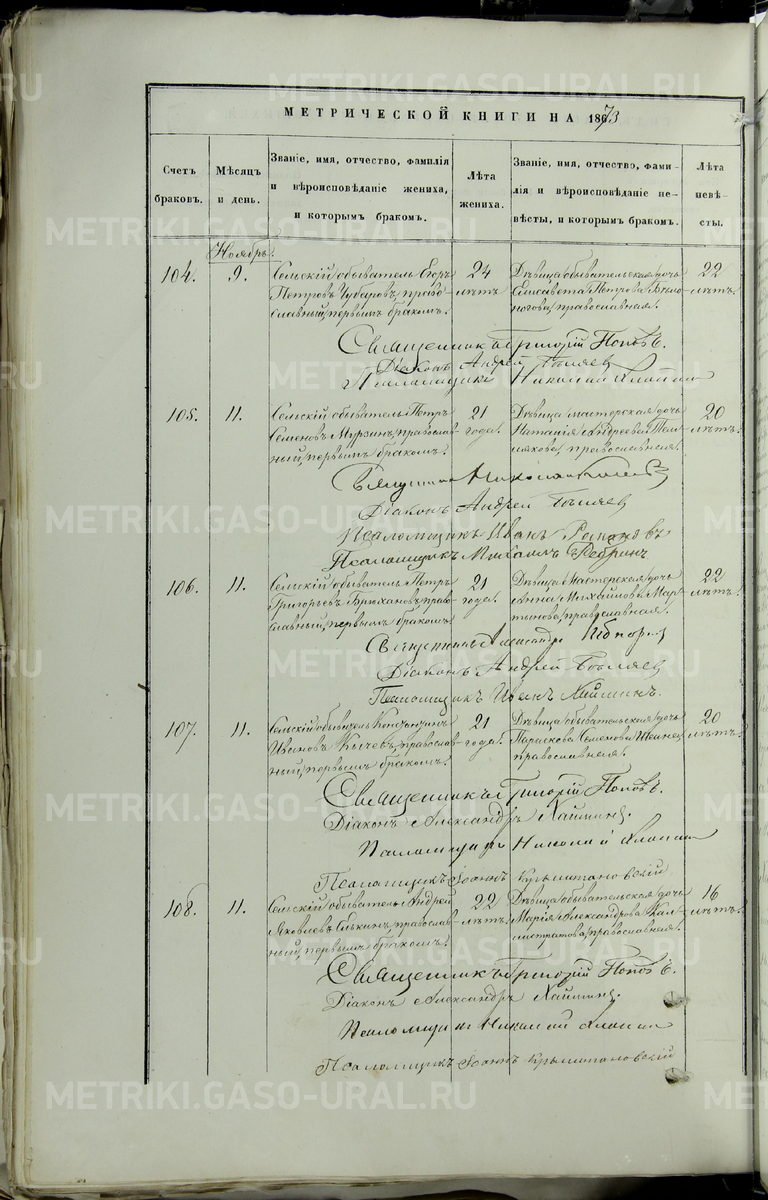 МЕТРИЧЕСКОЙ КНИГИ НА 1873
Счетъ браковъ.
Мѣсяцъ и день.
Званіе, имя, отчество, фамилія и вѣроисповѣданіе жениха, и которымъ бракомъ.
Лѣта жениха.
Званіе, имя, отчество, фамилія и вѣроисповѣданіе невѣсты, и которымъ бракомъ.
Лѣта невѣсты.
Ноябрь.
104. 9. Сельскій обыватель Егоръ 24 Дѣвица обывательская дочь 22
Петровъ Чубаровъ, православный, первымъ бракомъ. лѣтъ Елисавета Петрова православная. лѣтъ.
Священникъ Григорій Поповъ.
Діаконъ Андрей Бѣляев
Псаломщикъ Николай
105. 11. Сельскій обыватель Петръ 21 Дѣвица мастерская дочь 20
Семеновъ Мурзинъ, православный, первымъ бракомъ. года. Наталія Андреева православная. лѣтъ.
Священникъ Николай
Діаконъ Андрей Бѣляев
Псаломщикъ Иванъ
Псаломщикъ Михаилъ Ребринъ
106. 11. Сельскій обыватель Петръ 21 Дѣвица мастерская дочь 22
Григорьевъ Брюхановъ, православный, первымъ бракомъ. года. Анна Михайлова Мартынова, православная. лѣтъ.
Священникъ Александръ
Діаконъ Андрей Бѣляев
Псаломщикъ Иванъ Хайминъ.
107. 11. Сельскій обыватель Константинъ 21 Дѣвица обывательская дочь 20
Ивановъ Кычевъ, православный, первымъ бракомъ. года. Параскова Семенова православная. лѣтъ.
Священникъ Григорій Поповъ.
Діаконъ Александръ Хайминъ.
Псаломщикъ Николай
Псаломщикъ Іоаннъ Крыштановскій
108. 11. Сельскій обыватель Андрей 22 Дѣвица обывательская дочь 16
Яковлевъ Елькинъ, православный, первымъ бракомъ. лѣтъ. Марія Александрова Каллистратова, православная. лѣтъ.
Священникъ Григорій Поповъ.
Діаконъ Александръ Хайминъ.
Псаломщикъ Николай
Псаломщикъ Іоаннъ Крыштановскій
METRIKI.GASO-URAL.RU